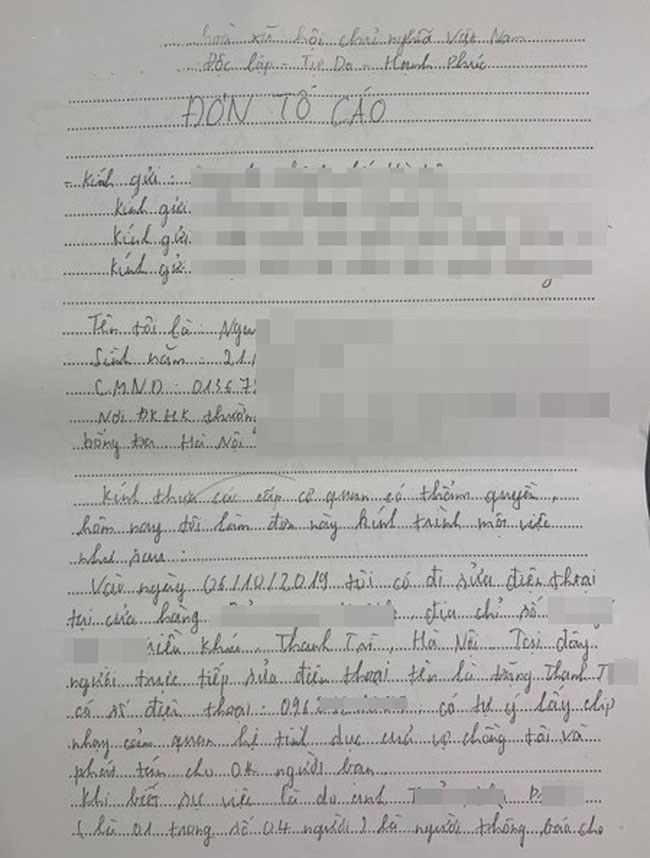 hoà xã hội chủ nghĩa Việt Nam
Độc lập - Tự Do - Hạnh Phúc
ĐƠN TỐ CÁO
- Kính gửi:
Kính gửi
Kính gửi
Kính gửi
Tên tôi là: Ngu
Sinh năm: 21.
C.M.N.D: 01367
Nơi ĐKHK thường
Đống Đa Hà Nội
Kính thưa các cấp cơ quan có thẩm quyền,
hôm nay tôi làm đơn này kính trình một việc
như sau:
Vào ngày 06/10/2019 tôi có đi sửa điện thoại
tại cửa hàng địa chỉ số
Khúc, Thanh Trì, Hà Nội. Tại đây
người trực tiếp sửa điện thoại tên là Thanh T
có số điện thoại: 096 có tự ý lấy clip
nhạy cảm quan hệ tình dục của vợ chồng tôi và
phát tán cho 04 người bạn
Khi biết sự việc là do anh P
(là 01 trong số 04 người) là người thông báo cho